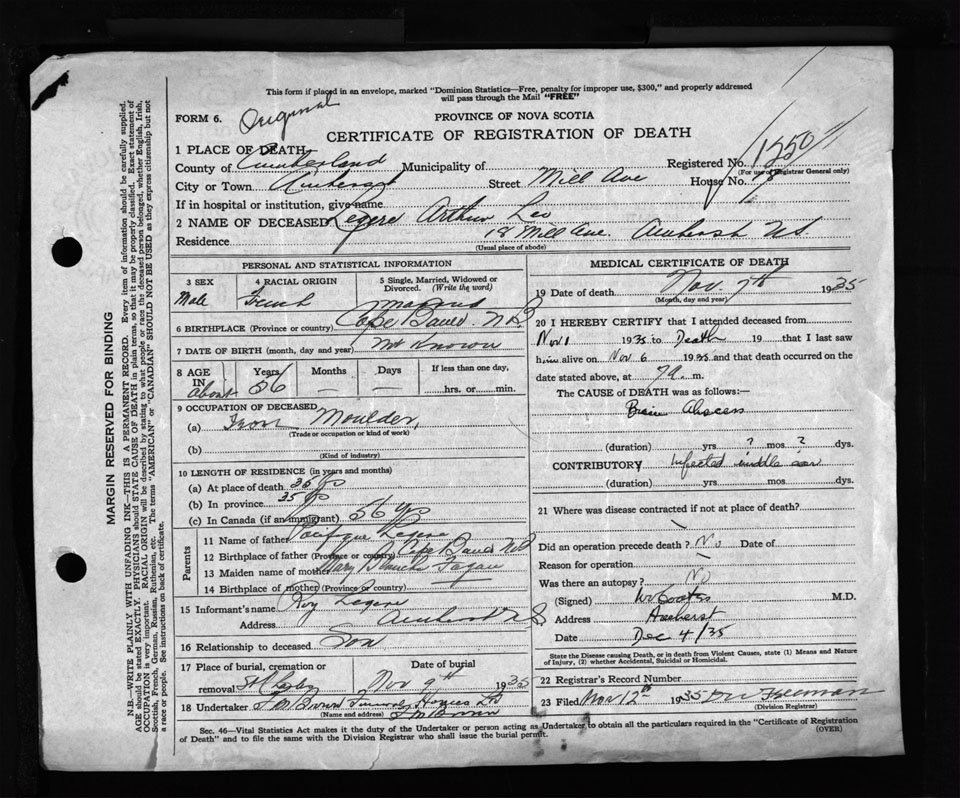 This form if placed in an envelope, marked "Dominion Statistics—Free, penalty for improper use, $300," and properly addressed
will pass through the Mail "FREE"
FORM 6. Original
PROVINCE OF NOVA SCOTIA
CERTIFICATE OF REGISTRATION OF DEATH
1 PLACE OF DEATH
County of Cumberland Municipality of Registered No. 1550
(For use of Registrar General only)
City or Town Amherst Street Mill Ave House No. 18
If in hospital or institution, give name
2 NAME OF DECEASED Legere Arthur Leo
Residence 18 Mill Ave. Amherst NS
(Usual place of abode)
PERSONAL AND STATISTICAL INFORMATION
3 SEX Male
4 RACIAL ORIGIN French
5 Single, Married, Widowed or Divorced. (Write the word) Married
6 BIRTHPLACE (Province or country) Cape Bauld NB
7 DATE OF BIRTH (month, day and year) Not Known
8 AGE IN About Years 56 Months — Days — If less than one day, hrs. or min.
9 OCCUPATION OF DECEASED
(a) Iron Moulder,
(Trade or occupation or kind of work)
(b)
(Kind of industry)
10 LENGTH OF RESIDENCE (in years and months)
(a) At place of death 35 yrs
(b) In province 35 yrs
(c) In Canada (if an immigrant) 56 yrs
Parents
11 Name of father Legere
12 Birthplace of father (Province or country) Cape Bauld NB
13 Maiden name of mother Mary Blanch
14 Birthplace of mother (Province or country)
15 Informant's name Roy Legere
Address Amherst NS
16 Relationship to deceased Son
17 Place of burial, cremation or removal Date of burial Nov 9th 1935
18 Undertaker Funeral Homes Ltd
(Name and address)
MEDICAL CERTIFICATE OF DEATH
19 Date of death Nov. 7th 1935
(Month, day and year)
20 I HEREBY CERTIFY that I attended deceased from
Nov 1 1935 to Death 19 that I last saw
him alive on Nov 6 1935 and that death occurred on the
date stated above, at 7 a. m.
The CAUSE of DEATH was as follows:—
Brain Abscess
(duration) yrs ? mos ? dys.
CONTRIBUTORY Infected middle ear
(duration) yrs. mos. ds.
21 Where was disease contracted if not at place of death?
Did an operation precede death? No Date of
Reason for operation
Was there an autopsy? No
(Signed) M.D.
Address Amherst
Date Dec 4/35
State the Disease causing Death, or in death from Violent Causes, state (1) Means and Nature
of Injury, (2) whether Accidental, Suicidal or Homicidal.
22 Registrar's Record Number
23 Filed Nov 12th 1935 Freeman
(Division Registrar)
Sec. 46—Vital Statistics Act makes it the duty of the Undertaker or person acting as Undertaker to obtain all the particulars required in the "Certificate of Registration
of Death" and to file the same with the Division Registrar who shall issue the burial permit.
(OVER)
MARGIN RESERVED FOR BINDING
N.B.—WRITE PLAINLY WITH UNFADING INK—THIS IS A PERMANENT RECORD. Every item of information should be carefully supplied.
AGE should be stated EXACTLY. PHYSICIANS should STATE CAUSE OF DEATH in plain terms, so that it may be properly classified. Exact statement of
OCCUPATION is very important. RACIAL ORIGIN will be described by stating to what people or race the deceased person belonged, whether English, Irish,
Scottish, French, German, Russian, Ruthenian, etc. The terms "AMERICAN" or "CANADIAN" SHOULD NOT BE USED as they express citizenship but not
a race or people. See instructions on back of certificate.